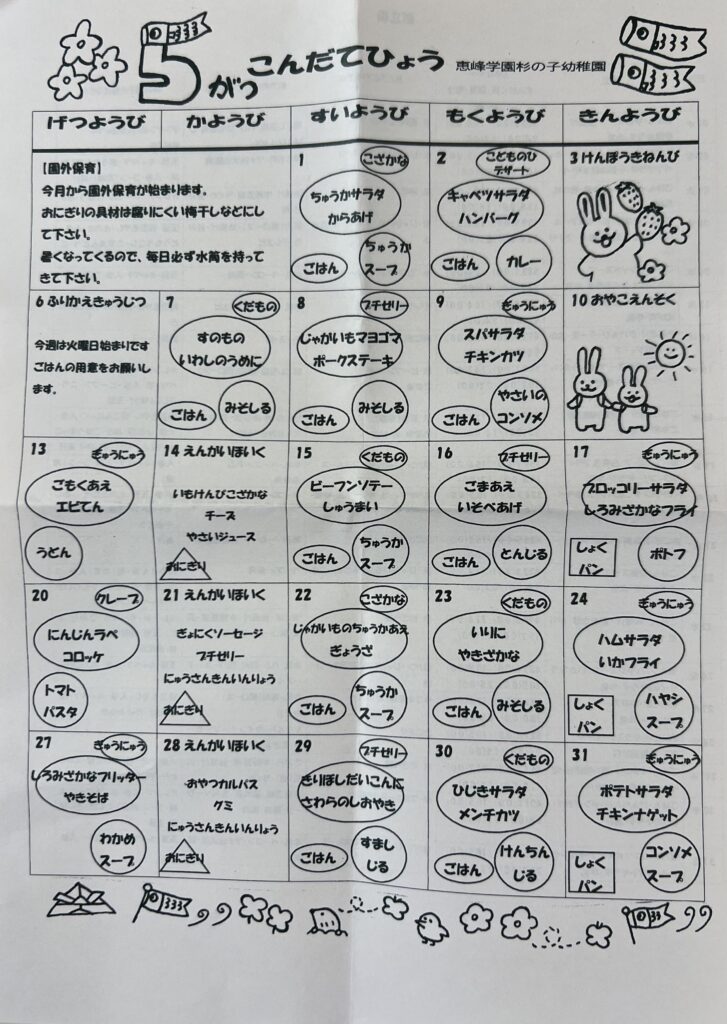 5がつ こんだてひょう 恵峰学園杉の子幼稚園
げつようび かようび すいようび もくようび きんようび
【園外保育】
今月から園外保育が始まります。
おにぎりの具材は腐りにくい梅干しなどにし
て下さい。
暑くなってくるので、毎日必ず水筒を持って
きて下さい。
1 こざかな
ちゅうかサラダ
からあげ
ごはん
ちゅうか
スープ
2 こどものひ
デザート
キャベツサラダ
ハンバーグ
ごはん
カレー
3 けんぽうきねんび
6 ふりかえきゅうじつ
今週は火曜日始まりです
ごはんの用意をお願いし
ます。
7 くだもの
すのもの
いわしのうめに
ごはん
みそしる
8 プチゼリー
じゃがいもマヨゴマ
ポークステーキ
ごはん
みそしる
9 ぎゅうにゅう
スパサラダ
チキンカツ
ごはん
やさいの
コンソメ
10 おやこえんそく
13 ぎゅうにゅう
ごもくあえ
エビてん
うどん
14 えんがいほいく
いもけんぴこざかな
チーズ
やさいジュース
おにぎり
15 くだもの
ビーフンソテー
しゅうまい
ごはん
ちゅうか
スープ
16 プチゼリー
ごまあえ
いそべあげ
ごはん
とんじる
17 ぎゅうにゅう
ブロッコリーサラダ
しろみざかなフライ
しょく
パン
ポトフ
20 クレープ
にんじんラペ
コロッケ
トマト
パスタ
21 えんがいほいく
ぎょにくソーセージ
プチゼリー
にゅうさんきんいんりょう
おにぎり
22 こざかな
じゃがいものちゅうかあえ
ぎょうざ
ごはん
ちゅうか
スープ
23 くだもの
いりに
やきざかな
ごはん
みそしる
24 ぎゅうにゅう
ハムサラダ
いかフライ
しょく
パン
ハヤシ
スープ
27 ぎゅうにゅう
しろみざかなフリッター
やきそば
わかめ
スープ
28 えんがいほいく
おやつカルパス
グミ
にゅうさんきんいんりょう
おにぎり
29 プチゼリー
きりぼしだいこんに
さわらのしおやき
ごはん
すまし
じる
30 くだもの
ひじきサラダ
メンチカツ
ごはん
けんちん
じる
31 ぎゅうにゅう
ポテトサラダ
チキンナゲット
しょく
パン
コンソメ
スープ